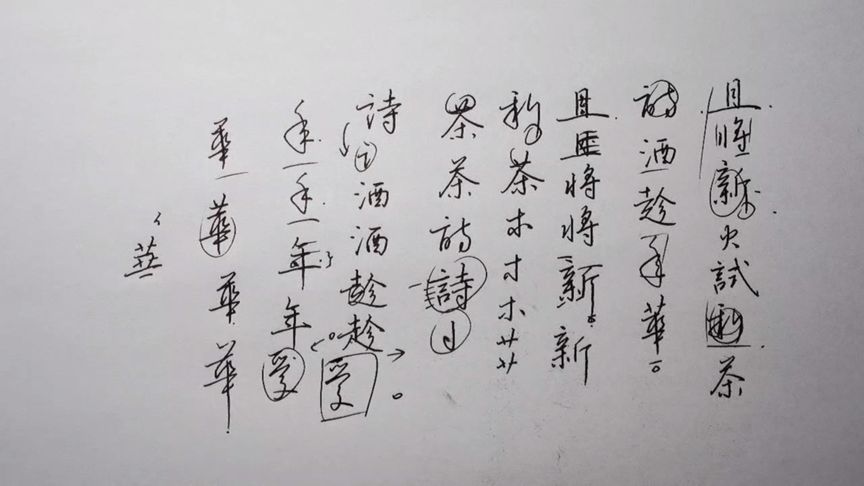 且將新火試新茶
詩酒趁年華
且且將將新新
新茶木寸木艹艹
茶茶詩詩日
詩酒酒趁趁受
年年年年受
華華華華